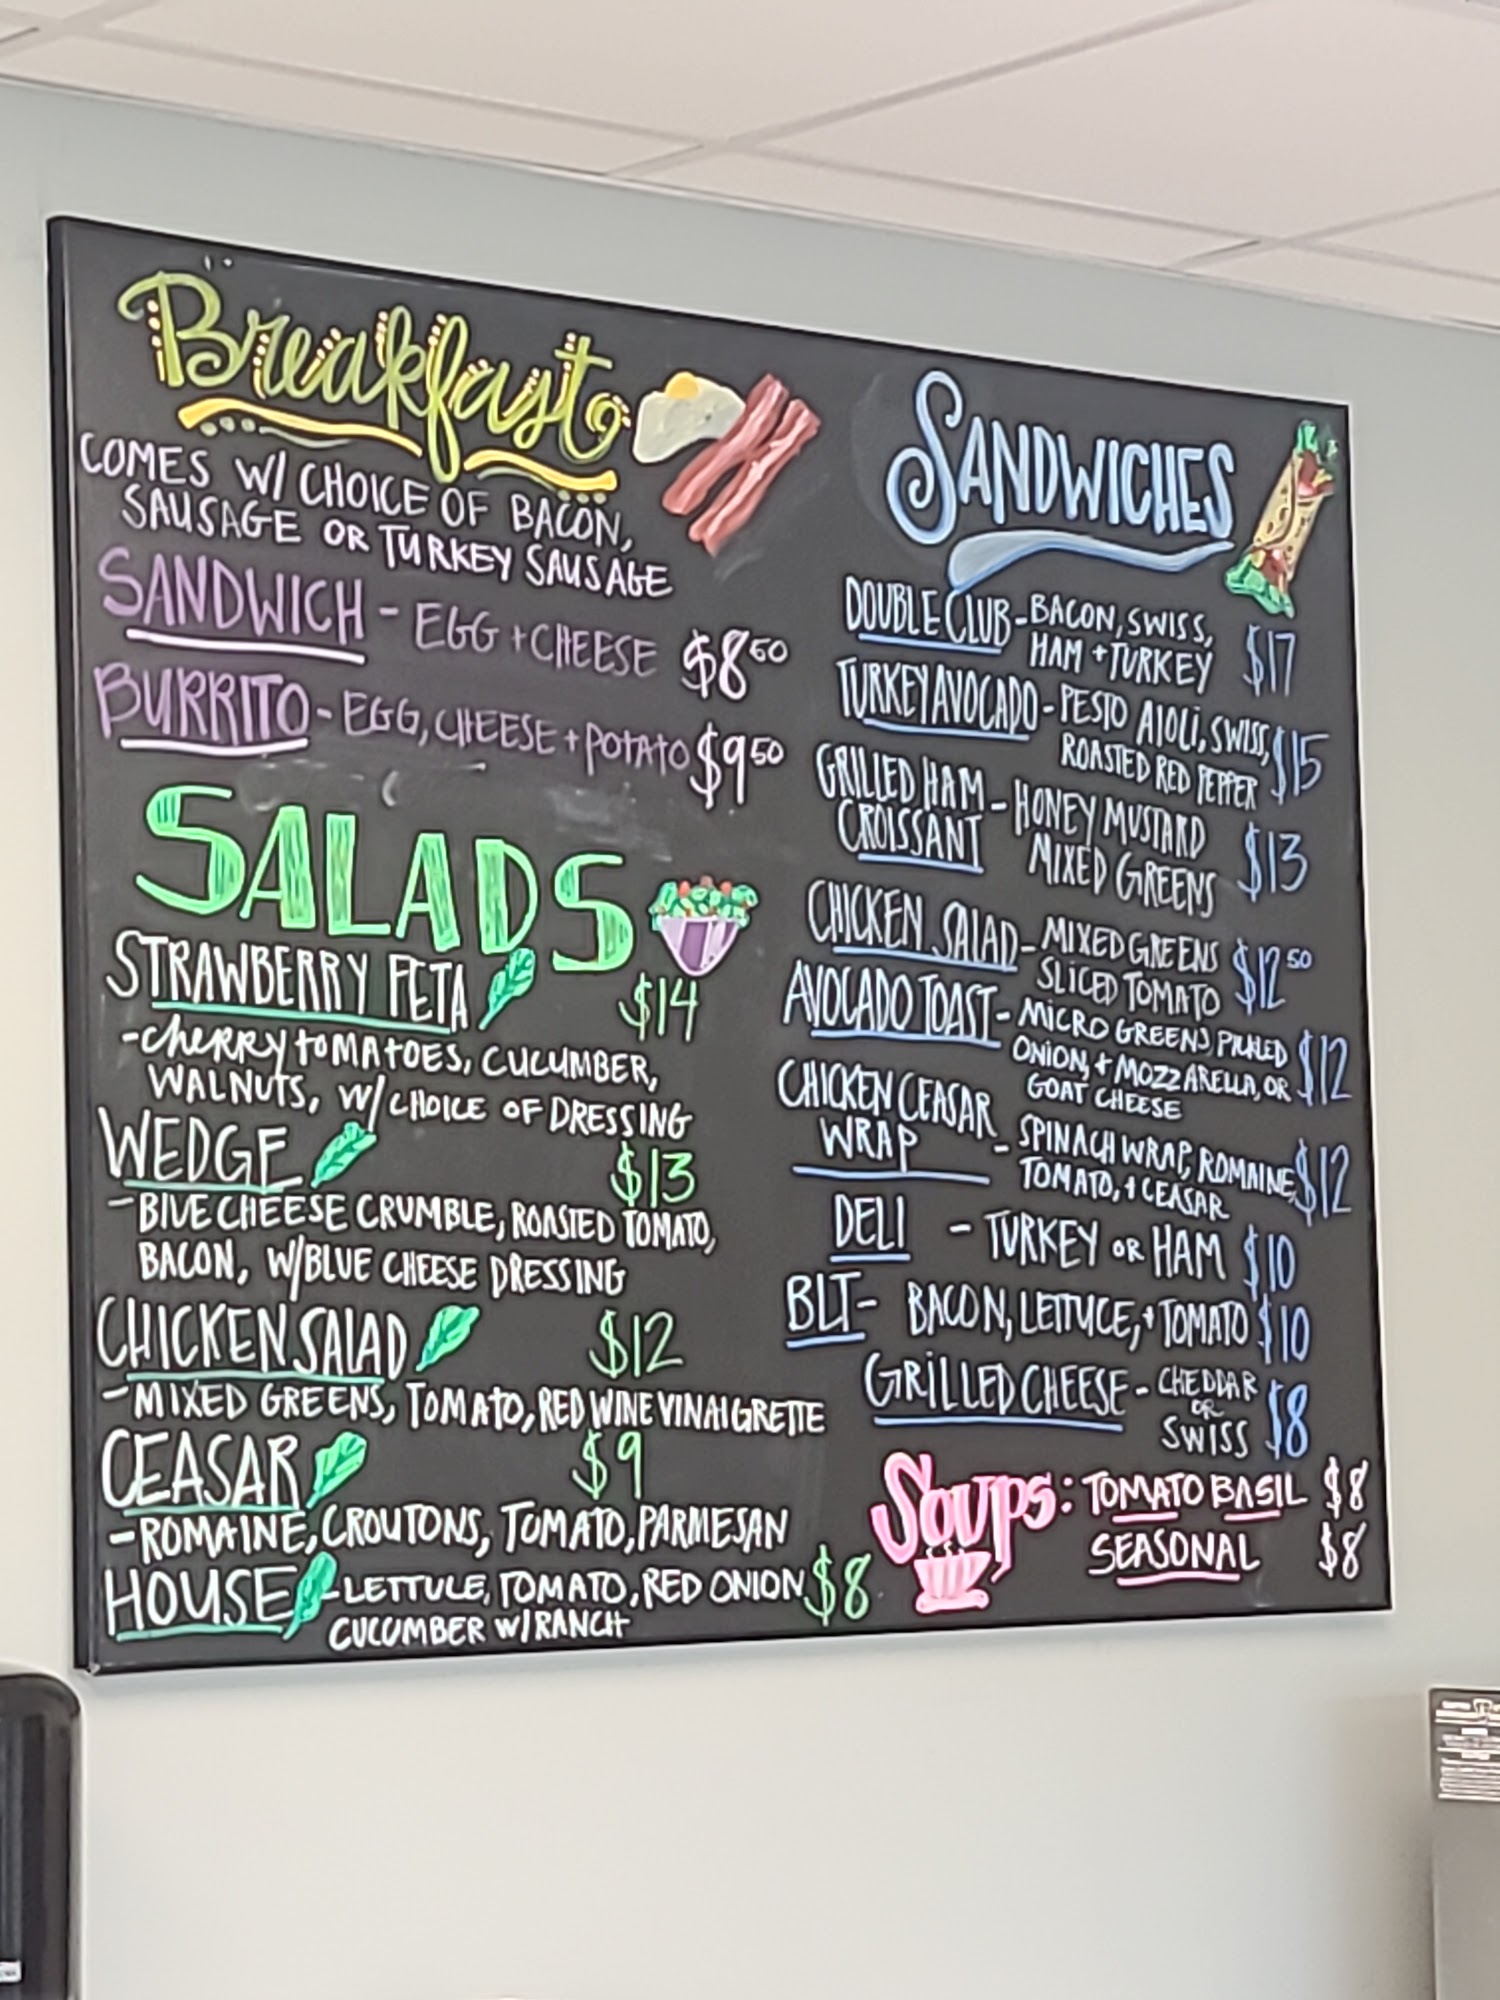 Breakfast
COMES W/ CHOICE OF BACON,
SAUSAGE OR TURKEY SAUSAGE
SANDWICH - EGG + CHEESE $8 50
BURRITO - EGG, CHEESE + POTATO $9 50
SALADS
STRAWBERRY FETA $14
- CHERRY TOMATOES, CUCUMBER,
WALNUTS, W/ CHOICE OF DRESSING
WEDGE $13
- BLUE CHEESE CRUMBLE, ROASTED TOMATO,
BACON, W/BLUE CHEESE DRESSING
CHICKEN SALAD $12
- MIXED GREENS, TOMATO, RED WINE VINAIGRETTE
CEASAR $9
- ROMAINE, CROUTONS, TOMATO, PARMESAN
HOUSE - LETTUCE, TOMATO, RED ONION $8
CUCUMBER W/RANCH
SANDWICHES
DOUBLE CLUB - BACON, SWISS,
HAM + TURKEY $17
TURKEY AVOCADO - PESTO AIOLI, SWISS,
ROASTED RED PEPPER $15
GRILLED HAM - HONEY MUSTARD
CROISSANT MIXED GREENS $13
CHICKEN SALAD - MIXED GREENS
SLICED TOMATO $12 50
AVOCADO TOAST - MICRO GREENS, PICKLED
ONION, + MOZZARELLA, OR $12
GOAT CHEESE
CHICKEN CEASAR - SPINACH WRAP, ROMAINE,
WRAP TOMATO, + CEASAR $12
DELI - TURKEY OR HAM $10
BLT - BACON, LETTUCE, + TOMATO $10
GRILLED CHEESE - CHEDDAR
OR
SWISS $8
SOUPS: TOMATO BASIL $8
SEASONAL $8